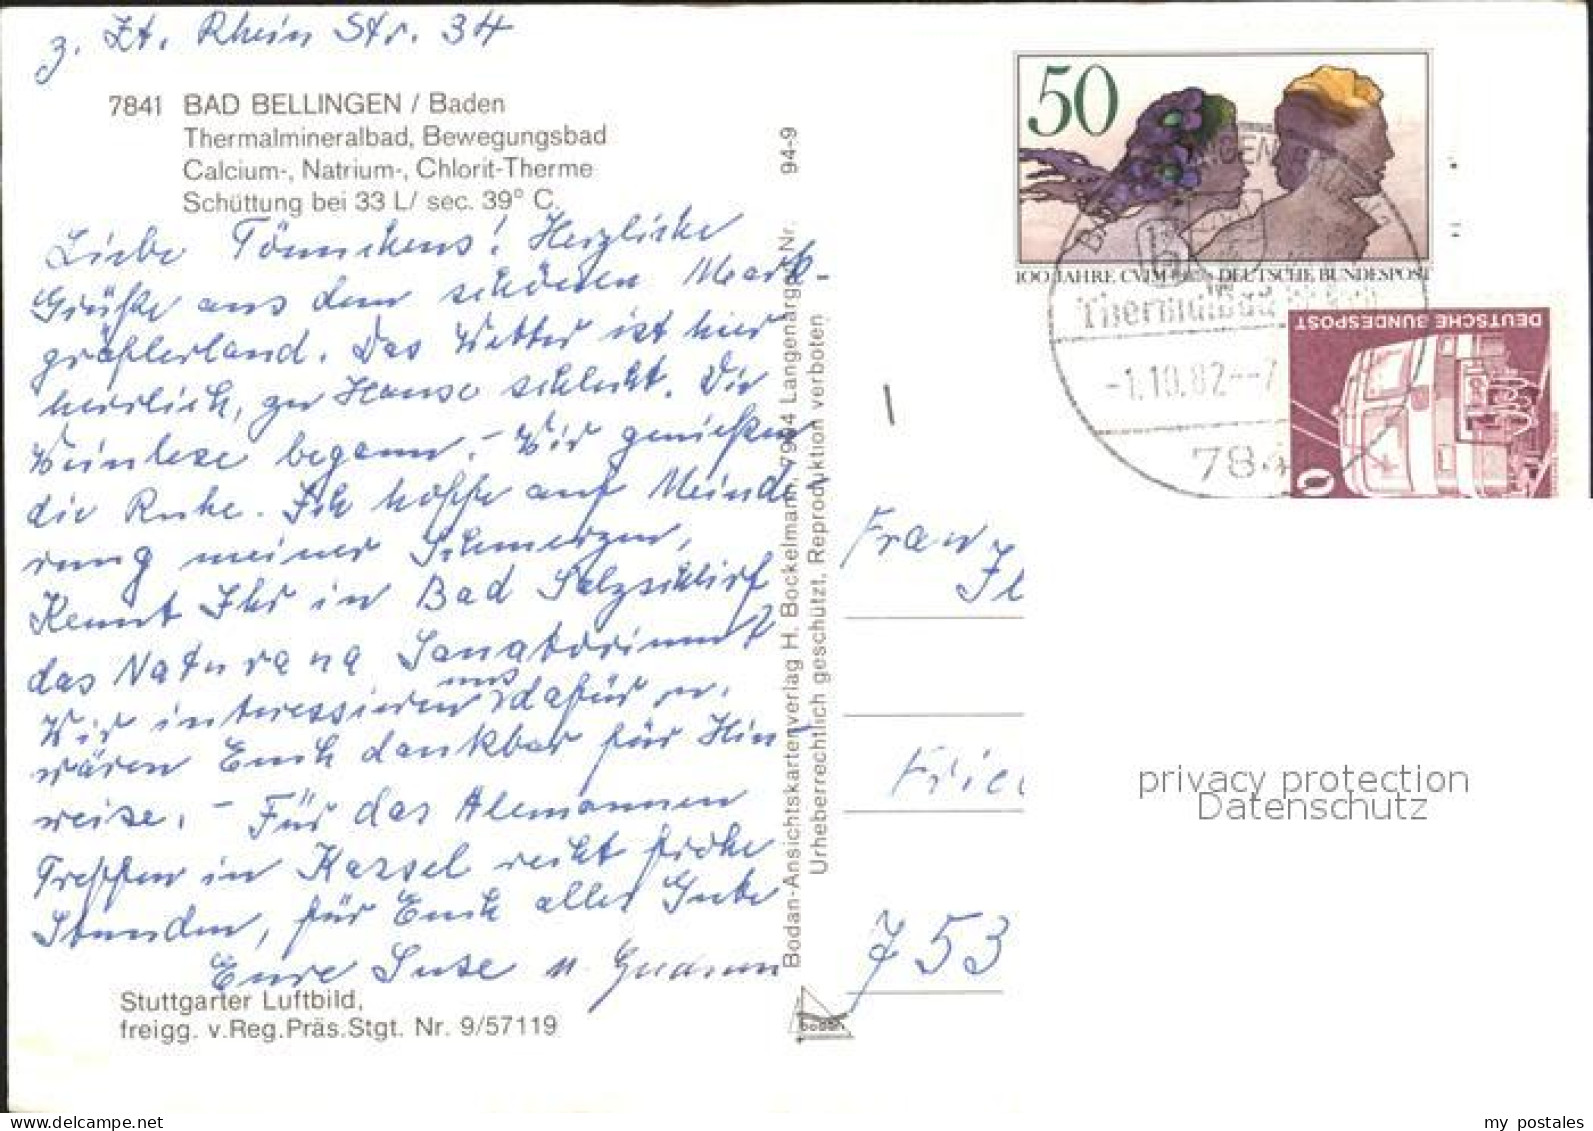 z. Zt. Rhein Str. 34
7841 BAD BELLINGEN / Baden
Thermalmineralbad, Bewegungsbad
Calcium-, Natrium-, Chlorit-Therme
Schüttung bei 33 L/ sec. 39° C.
Liebe Tönnchens! Herzliche
Grüße aus dem schönen Mark-
gräflerland. Das Wetter ist hier
herrlich, zu Hause schlecht. Die
Weinlese begann. – Wir genießen
die Ruhe. Ich hoffe auf Meinde-
rung meiner Schmerzen,
Kennt Ihr in Bad Salzschlirf
das Naturana Sanatorium?
Wir interessieren uns dafür u.
wären Euch dankbar für Hin-
weise. – Für das Alemannen
Treffen in Kassel recht frohe
Stunden, für Euch alles Gute
Eure Suse u. Gudrun
Stuttgarter Luftbild,
freigg. v.Reg.Präs.Stgt. Nr. 9/57119
94-9
Bodan-Ansichtskartenverlag H. Bockelmann, 7994 Langenargen Nr.
Urheberrechtlich geschützt, Reproduktion verboten
bodan
50
100 JAHRE CVJM DEUTSCHE BUNDESPOST
DEUTSCHE BUNDESPOST
0
Thermalbad
-1.10.82--7
784
Frau
Fried
753
privacy protection
Datenschutz
my postales